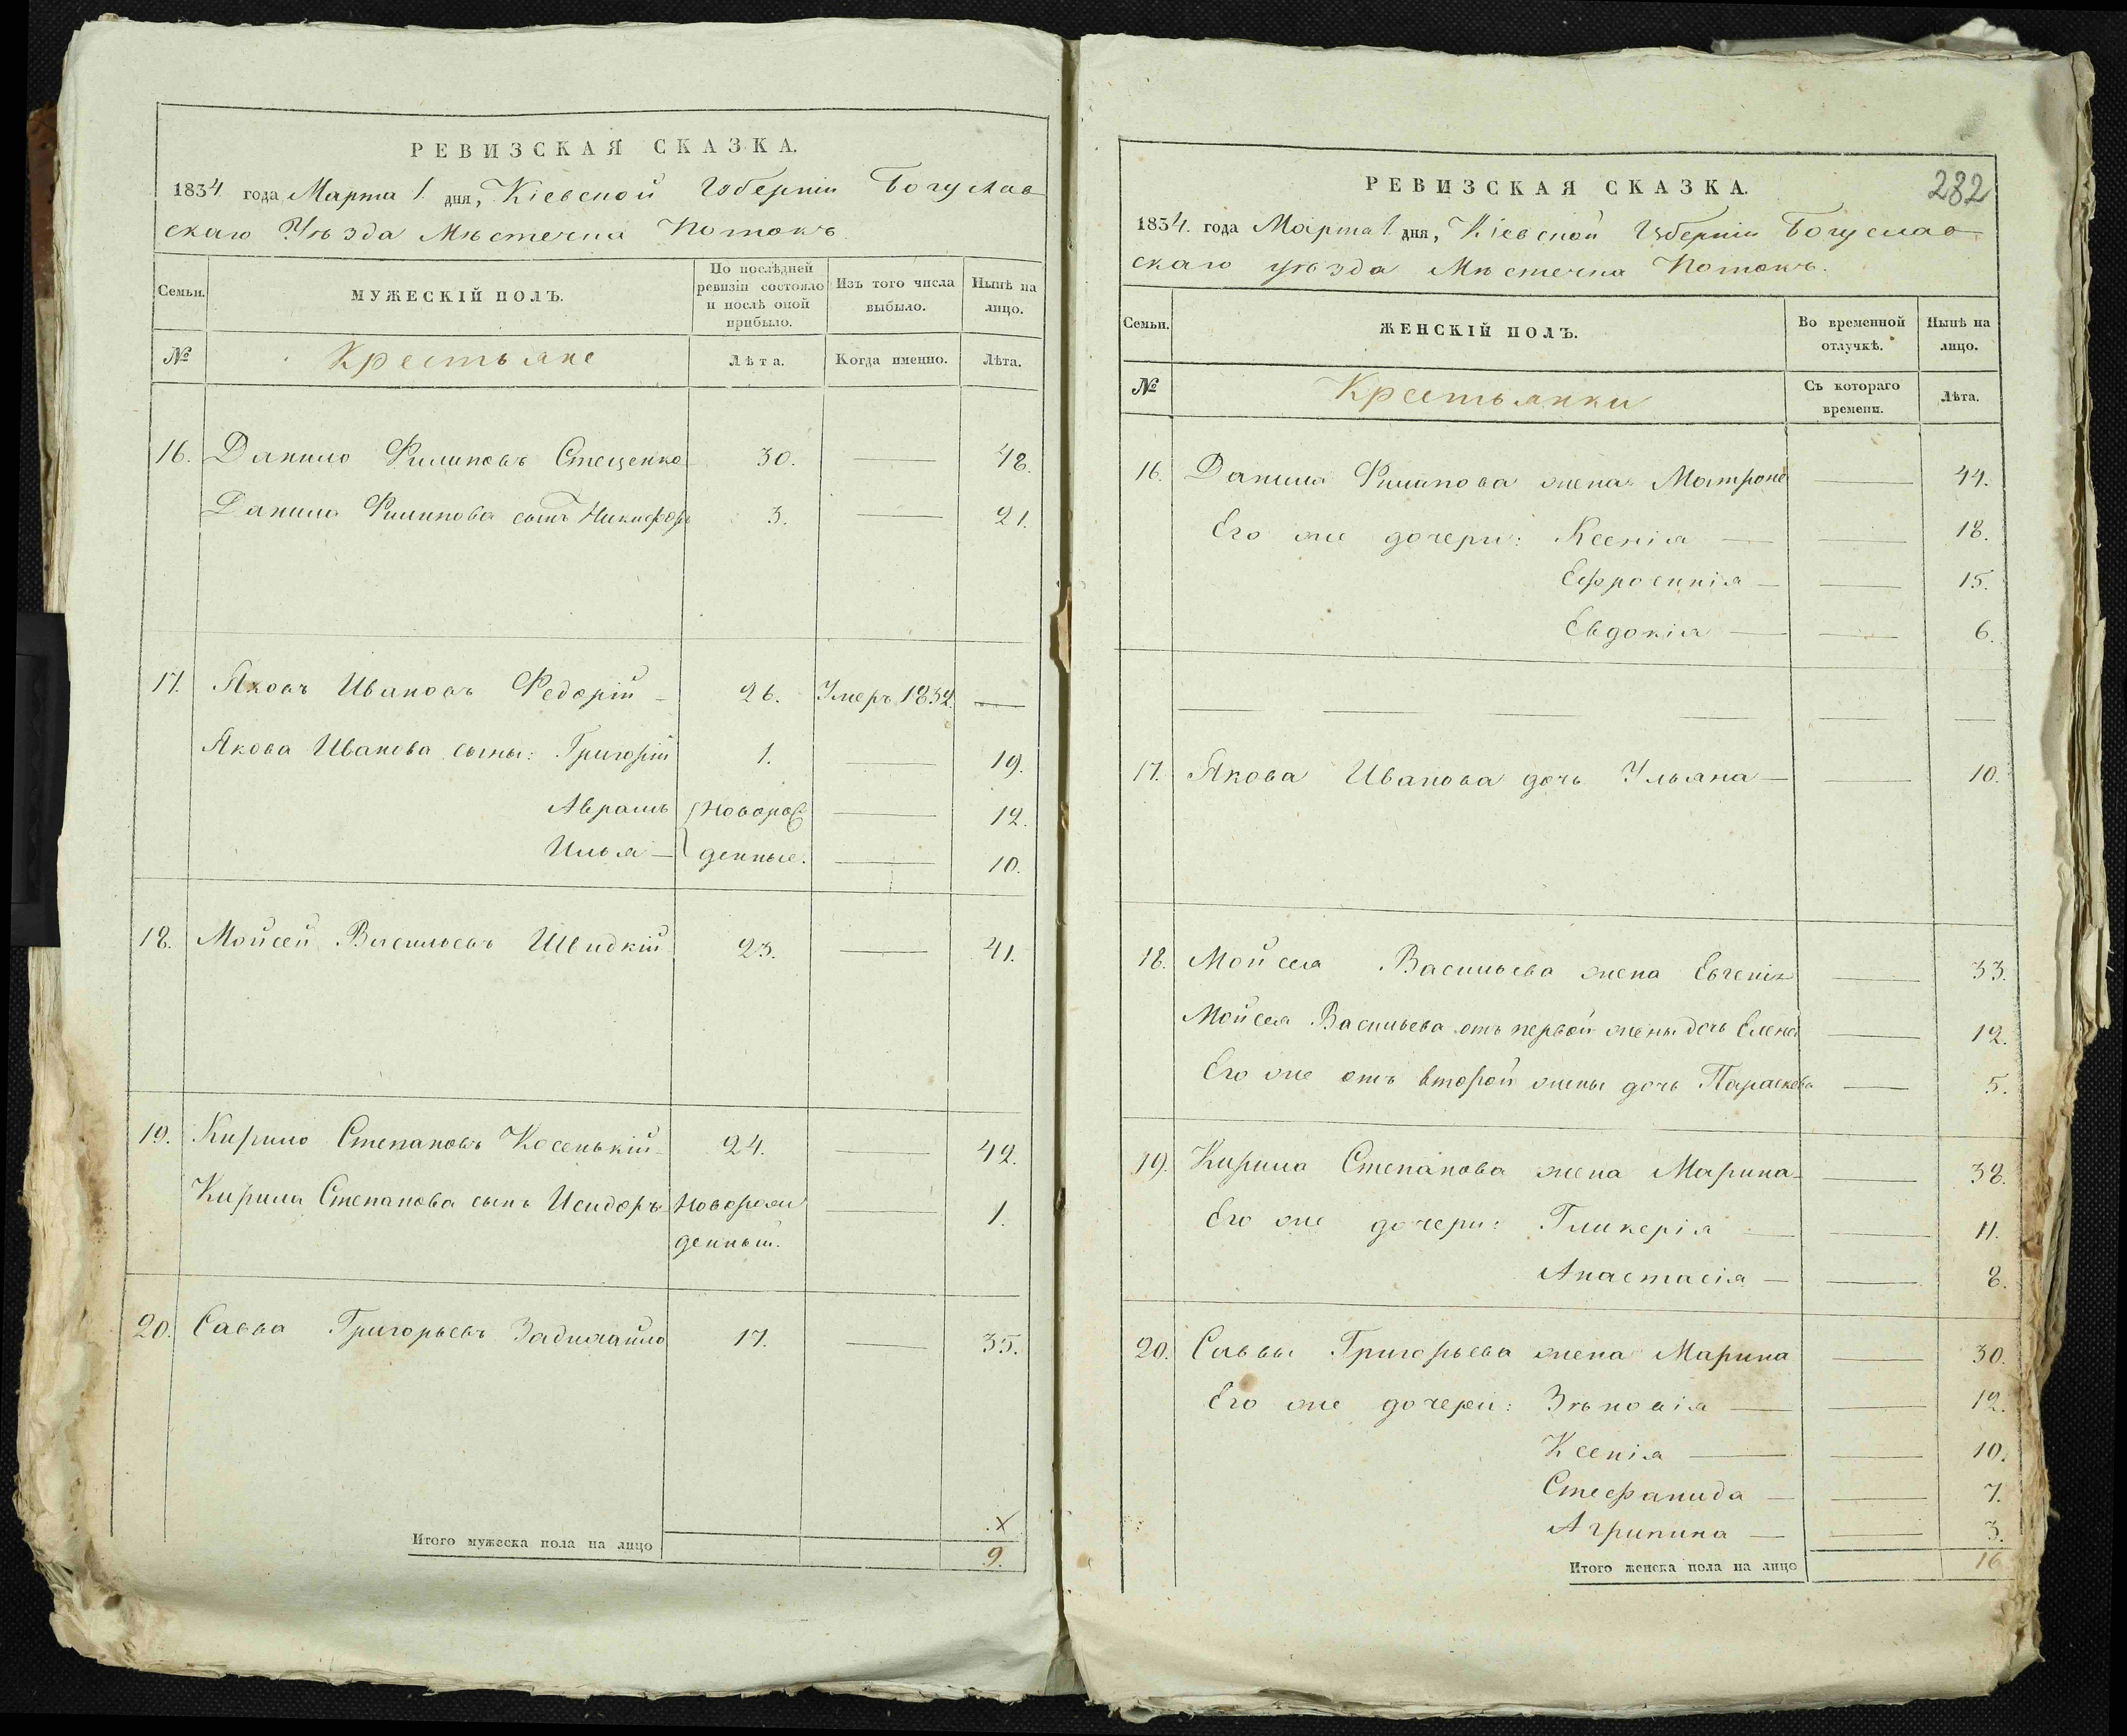 РЕВИЗСКАЯ СКАЗКА.
1834 года Марта 1 дня, Кіевской Губерніи Богуслав
скаго Уѣзда Мѣстечка Потокъ
Семьи. МУЖЕСКІЙ ПОЛЪ. По послѣдней ревизіи состояло и послѣ оной прибыло. Изъ того числа выбыло. Нынѣ на лицо.
№ Крестьяне Лѣта. Когда именно. Лѣта.
16. Данило Филиповъ Стеценко 30. — 48.
Данила Филипова сынъ Никифоръ 3. — 21.
17. Яковъ Ивановъ Федорій 26. Умеръ 1832. —
Якова Иванова сыны: Григорій 1. — 19.
Аврамъ новорож — 12.
Илья — денные. — 10.
18. Мойсей Васильевъ Швидкій 23. — 41.
19. Кирило Степановъ Косенькій 24. — 42.
Кирила Степанова сынъ Исидоръ новорож — 1.
денный.
20. Савва Григорьевъ 17. — 35.
х
Итого мужеска пола на лицо 9.
282
РЕВИЗСКАЯ СКАЗКА.
1834. года Марта 1 дня, Кіевской Губерніи Богуслав
скаго уѣзда Мѣстечка Потокъ.
Семьи. ЖЕНСКІЙ ПОЛЪ. Во временной отлучкѣ. Нынѣ на лицо.
№ Крестьянки Съ котораго времени. Лѣта.
16. Данила Филипова жена Матрона — 44.
Его же дочери: Ксенія — — 18.
Ефросинія — — 15.
Евдокія — — 6.
— — — — — —
17. Якова Иванова дочь Ульяна — — 10.
18. Мойсея Васильева жена Евгенія — 33.
Мойсея Васильева отъ первой жены дочь Елена — 12.
Его же отъ второй жены дочь Параскева — 5.
19. Кирила Степанова жена Марина — — 38.
Его же дочери: Гликерія — — 11.
Анастасія — — 8.
20. Саввы Григорьева жена Марина — 30.
Его же дочери: Зѣновія — — 12.
Ксенія — — 10.
Стефанида — — 7.
Агрипина — — 3.
Итого женска пола на лицо 16